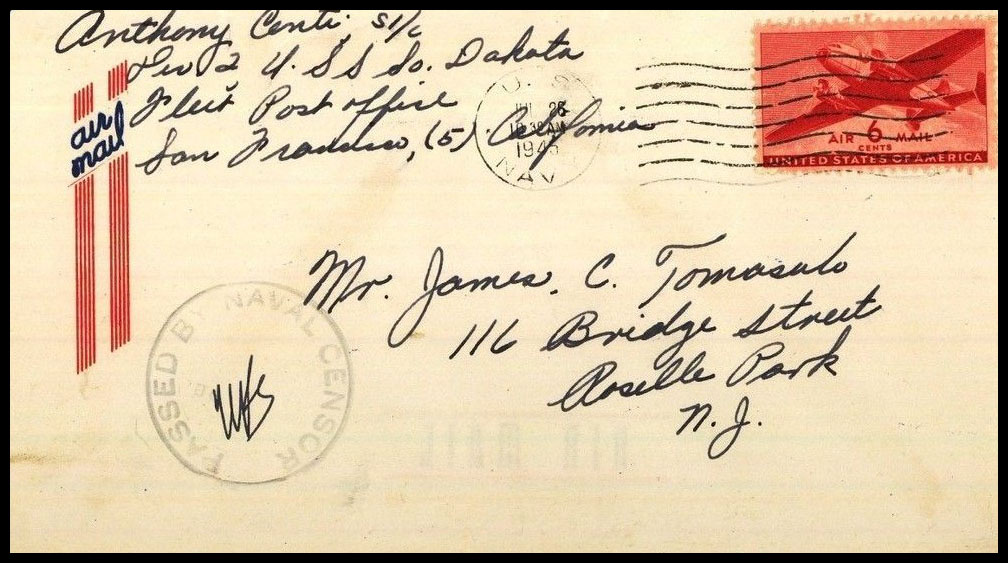 Anthony Centi, S1/c
Div 2 U.S.S So. Dakota
Fleet Post office
San Francisco, (5) California
air
mail
U. S.
26
AM
1945
NAV
AIR 6 MAIL
CENTS
UNITED STATES OF AMERICA
Mr. James. C. Tomasulo
116 Bridge Street
Roselle Park
N.J.
PASSED BY NAVAL CENSOR
AIR MAIL